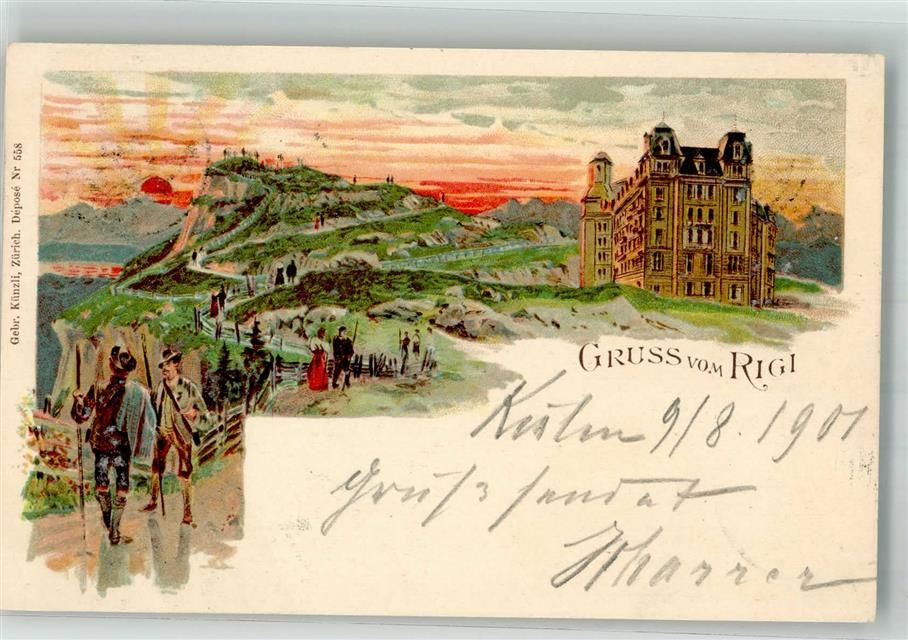 Gebr. Künzli, Zürich. Déposé Nr 558
GRUSS VOM RIGI
Kulm 9/8. 1901
Gruß sendet
Scharrer